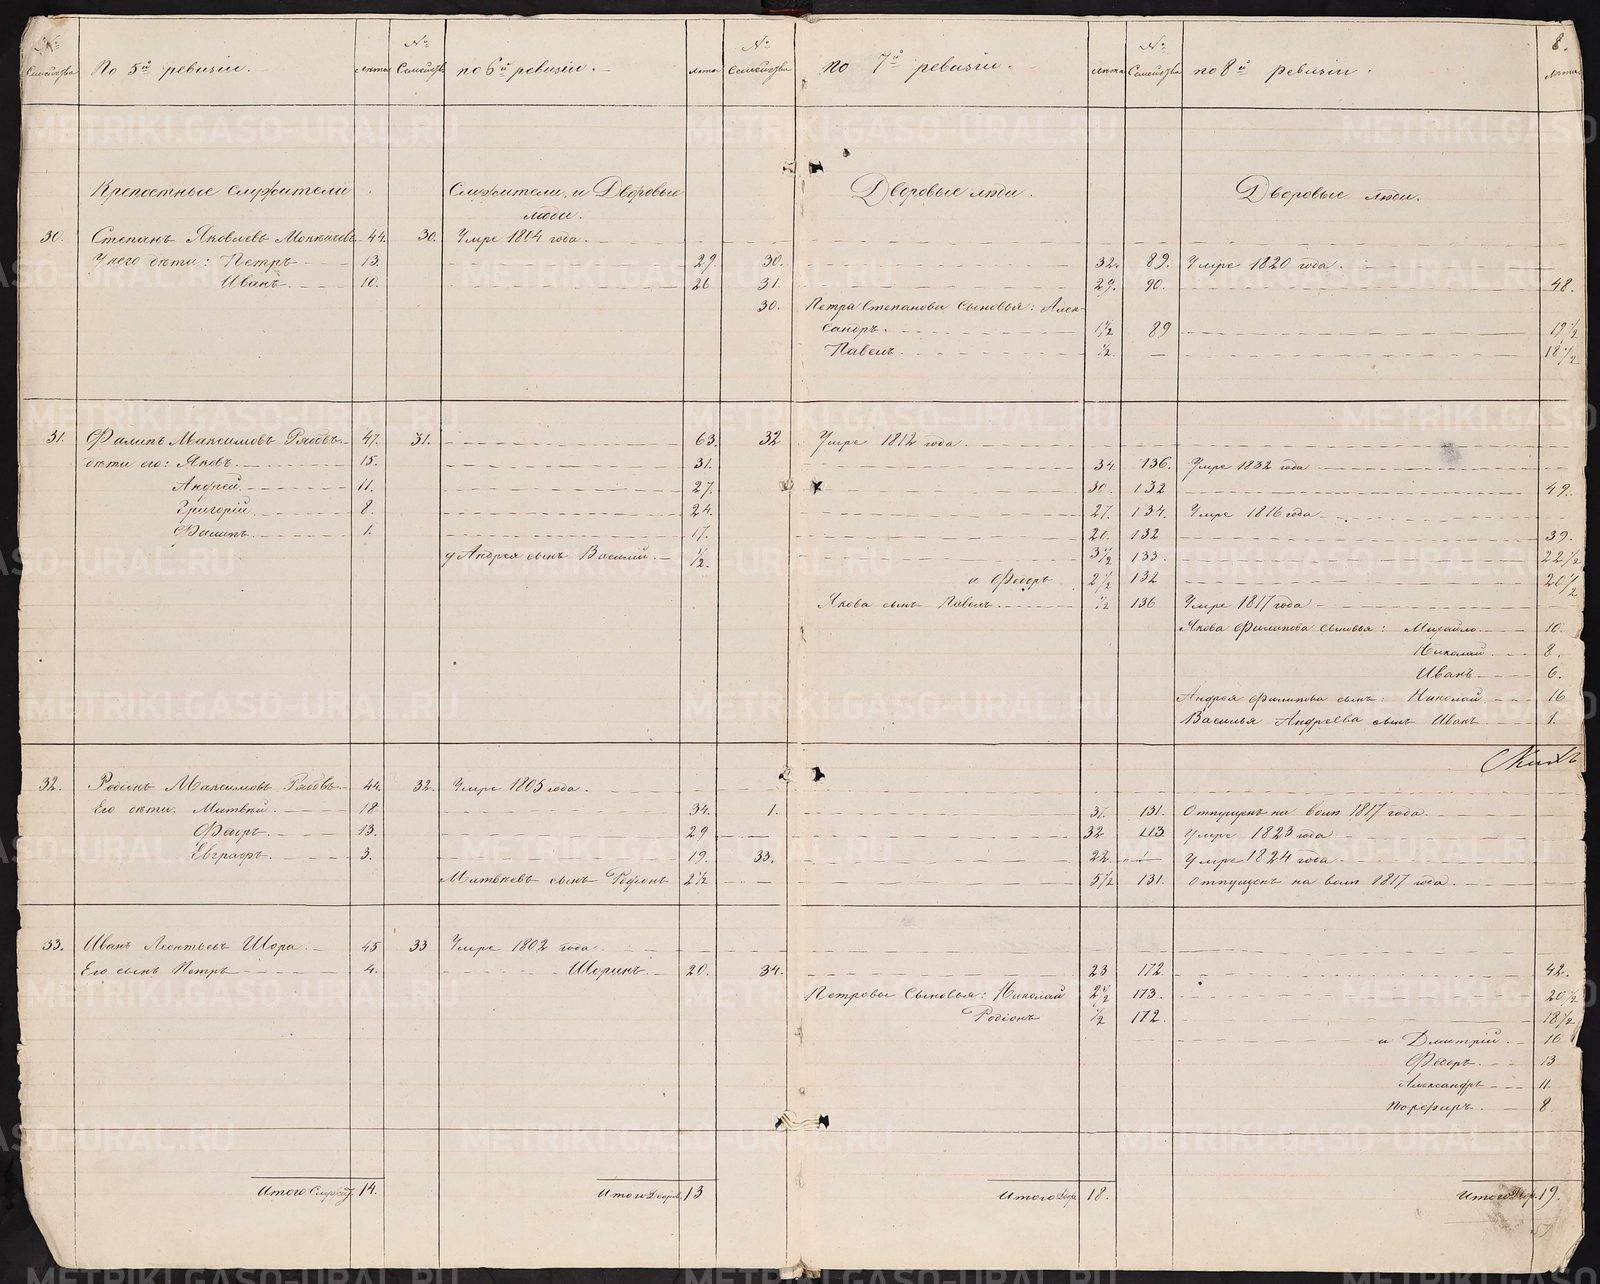 № Семейства По 5й ревизіи. лѣта № Семейства по 6й ревизіи. лѣта № Семейства по 7й ревизіи. лѣта № Семейства по 8й ревизіи. лѣта 8.
Крепостные служители Служители и Дворовые люди. Дворовые люди. Дворовые люди.
30. Степанъ Яковлевъ 44. 30. Умре 1804 года.
У него дѣти: Петръ 13. 29. 30. 32. 89. Умре 1820 года.
Иванъ. 10. 26 31. 29. 90. 48.
30. Петра Степанова Сыновья: Алек-
сандръ. 1½ 89 19½
Павелъ. ½ — 18½
31. Филипъ Максимовъ Рябовъ 47. 31. 63. 32 Умре 1812 года.
дѣти его: Яковъ. 15. 31. 34. 136. Умре 1832 года
Андрей. 11. 27. 30. 132 49.
Григорій. 8. 24. 27. 134. Умре 1816 года
Филипъ. 1. 17. 20. 132 39.
у Андрея сынъ Василій. ½. 3½ 133. 22½
и Федоръ 2½ 132 20½
Якова сынъ Павелъ. ½ 136 Умре 1817 года
Якова Филипова сыновья: Михайло 10.
Николай. 8.
Иванъ 6.
Андрея Филипова сынъ: Николай 16
Василья Андреева сынъ Иванъ 1.
32. Родіонъ Максимовъ Рябовъ 44. 32. Умре 1805 года.
Его дѣти. Матвѣй. 18 34. 1. 37. 131. Отпущенъ на волю 1817 года.
Федоръ. 13. 29 32 113 Умре 1823 года
Евграфъ. 3. 19. 33. 22. Умре 1824 года
Матвѣевъ сынъ Родіонъ 2½ 5½ 131. Отпущенъ на волю 1817 года.
33. Иванъ Леонтьевъ Шора 45 33 Умре 1802 года.
Его сынъ Петръ 4. Шоринъ. 20. 34. 23 172 42.
Петровы Сыновья: Николай 2½ 173. 20½
Родіонъ ½ 172 18½
и Дмитрій. 16
Федоръ. 13
Александръ 11.
Порфиръ. 8.
Итого Служ. 14. Итого Дворов. 13 Итого Двор. 18. Итого Двор. 19.
METRIKI.GASO-URAL.RU